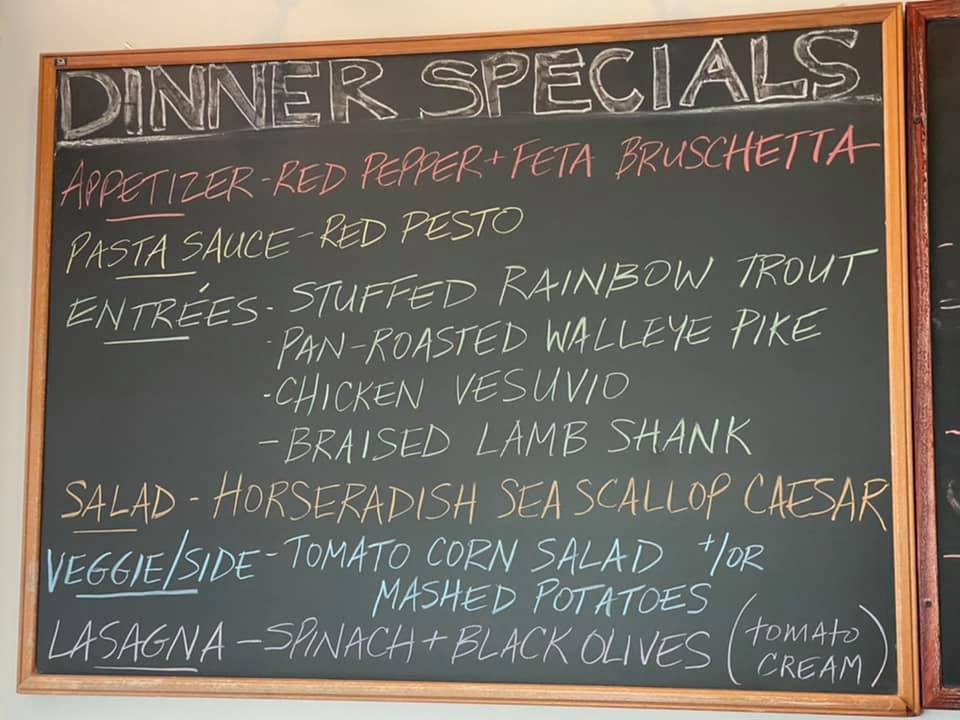 DINNER SPECIALS
APPETIZER - RED PEPPER + FETA BRUSCHETTA
PASTA SAUCE - RED PESTO
ENTRÉES - STUFFED RAINBOW TROUT
- PAN-ROASTED WALLEYE PIKE
- CHICKEN VESUVIO
- BRAISED LAMB SHANK
SALAD - HORSERADISH SEA SCALLOP CAESAR
VEGGIE/SIDE - TOMATO CORN SALAD +/OR
MASHED POTATOES
LASAGNA - SPINACH + BLACK OLIVES (TOMATO
CREAM)